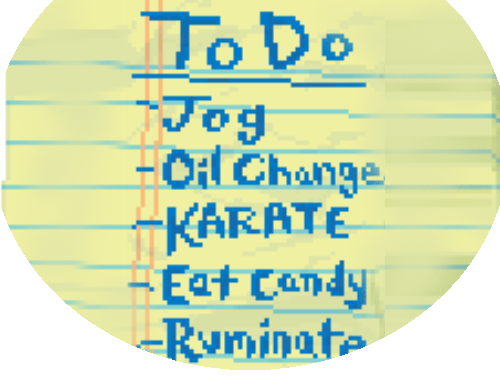 To Do
- Jog
- Oil Change
- KARATE
- Eat Candy
- Ruminate